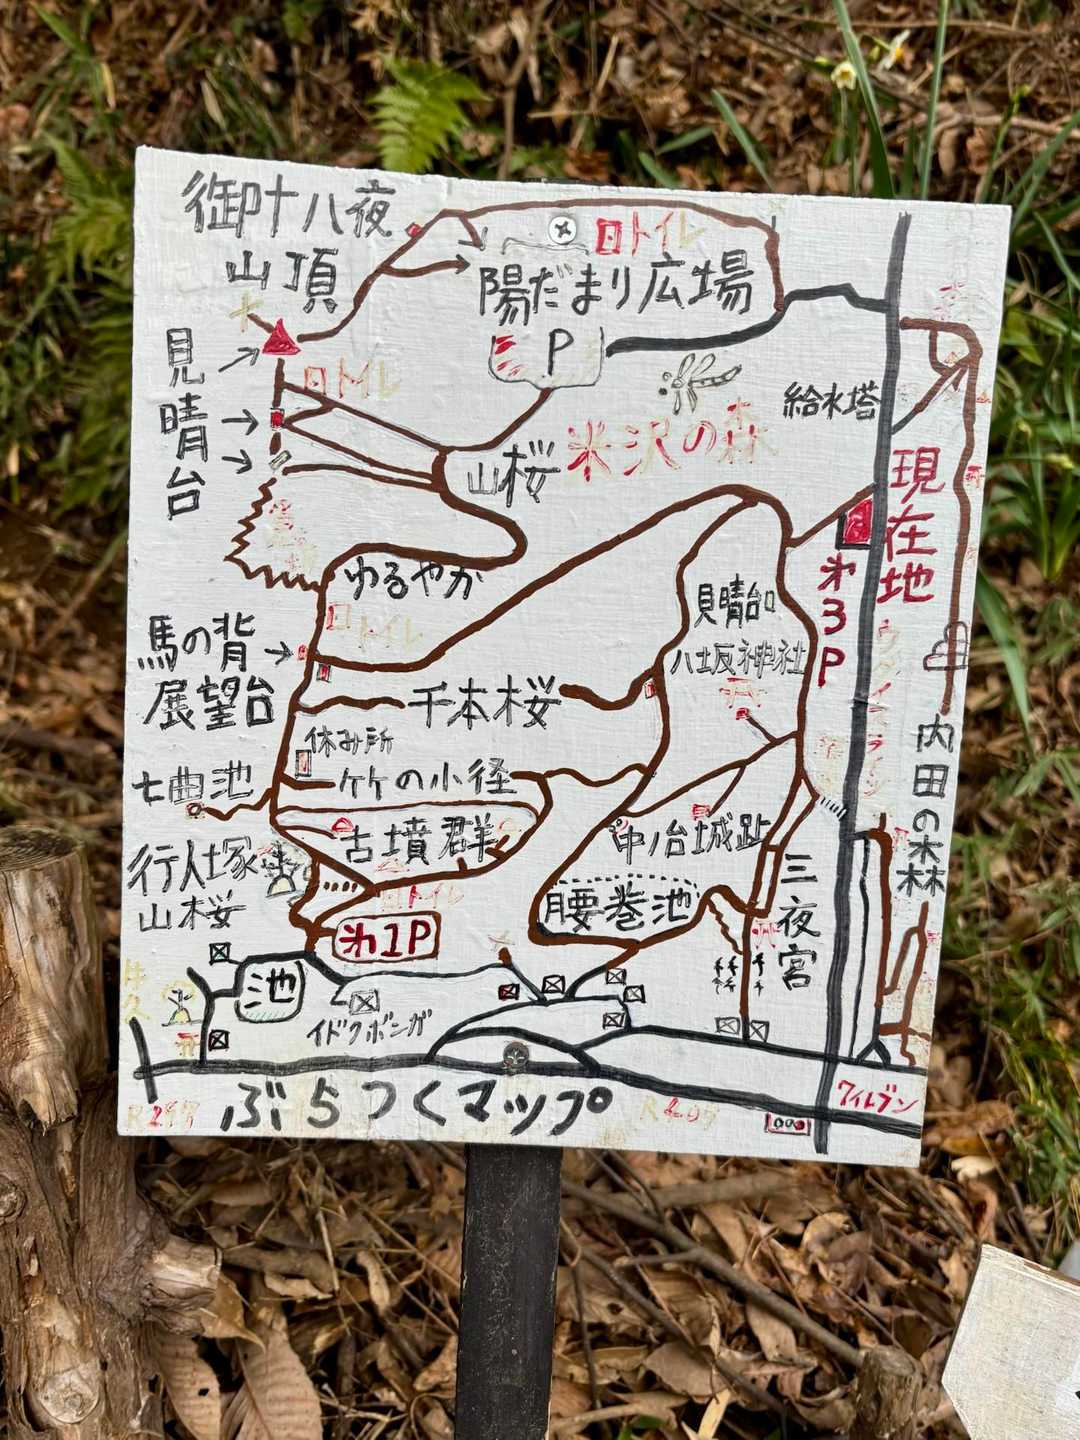 御十八夜
山頂
トイレ
陽だまり広場
P
見晴台
トイレ
給水塔
山桜
米沢の森
現在地
ゆるやか
第3P
見晴台
トイレ
馬の背
展望台
八坂神社
千本桜
休み所
内田の森
七曲池
竹の小径
古墳群
中ノ台城趾
行人塚
山桜
トイレ
三夜宮
腰巻池
第1P
池
イドクボンガ
ぶらつくマップ
R297
R409
ワイルブン